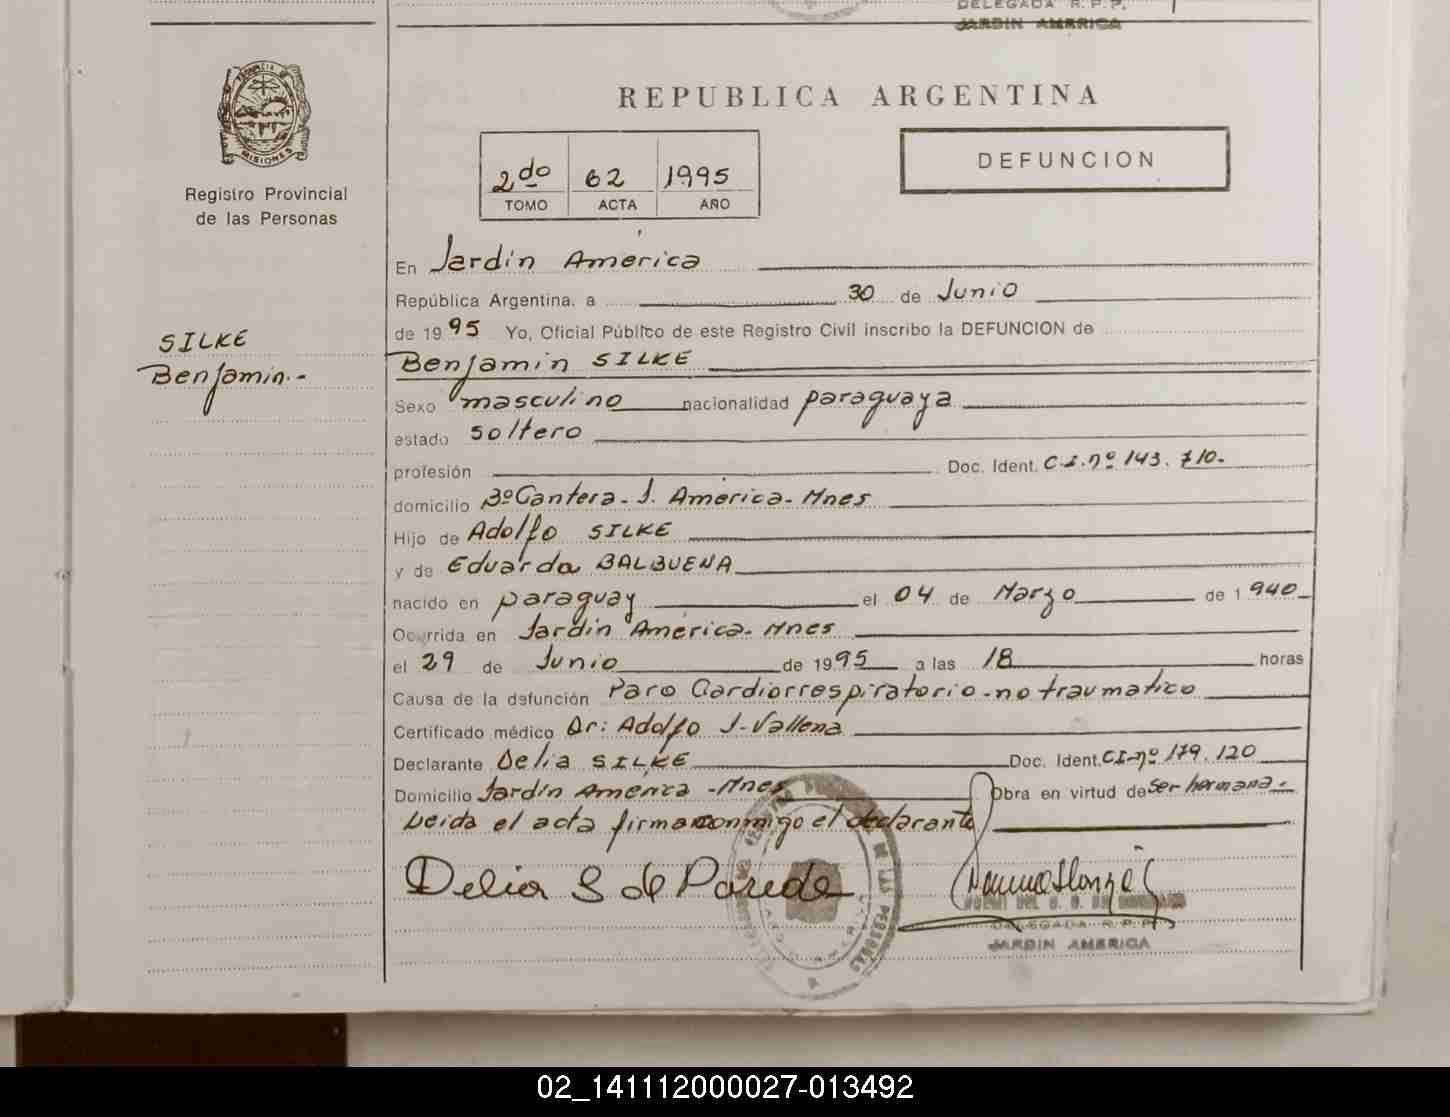 DELEGADA R. P. P.
JARDIN AMERICA
PROVINCIA DE
MISIONES
Registro Provincial
de las Personas
REPUBLICA ARGENTINA
2do 62 1995
TOMO ACTA AÑO
DEFUNCION
En Jardin América
República Argentina. a 30 de Junio
de 1995 Yo, Oficial Público de este Registro Civil inscribo la DEFUNCION de
SILKE
Benjamin.-
Benjamin SILKE
Sexo masculino nacionalidad paraguaya
estado soltero
profesión Doc. Ident. C.I. nº 143.710.
domicilio Bº Cantera- J. América- Mnes
Hijo de Adolfo SILKE
y de Eduarda BALBUENA
nacido en paraguay el 04 de Marzo de 1940
Ocurrida en Jardin América- Mnes
el 29 de Junio de 1995 a las 18 horas
Causa de la defunción Paro Cardiorrespiratorio-no traumatico
Certificado médico Dr: Adolfo J. Vallena
Declarante Delia SILKE Doc. Ident. CI-nº 179.120
Domicilio Jardin America -Mnes Obra en virtud de ser hermana.-
Leida el acta firma conmigo el declarante
Delia S de Parede
DELEGADA R. P. P.
JARDIN AMERICA
DE LAS PERSONAS
02_141112000027-013492